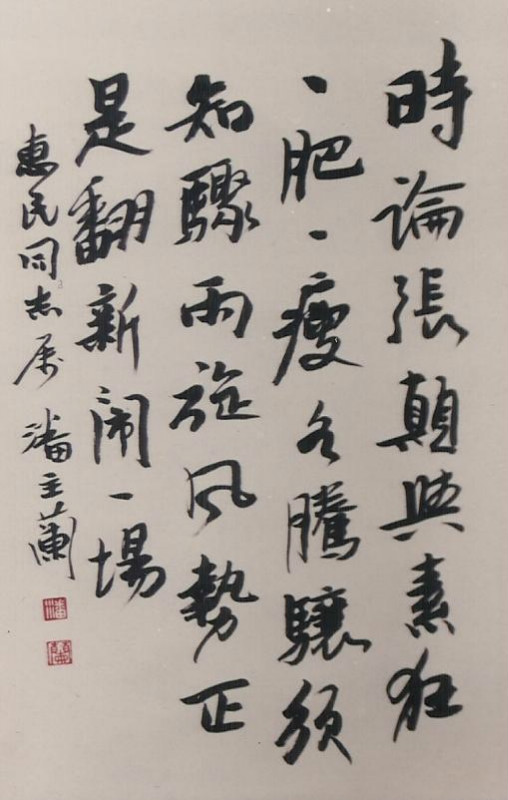 時論張顛與素狂
一肥一瘦各騰驤須
知驟雨旋風勢正
是翻新闹一場
惠民同志属 潘主蘭
潘